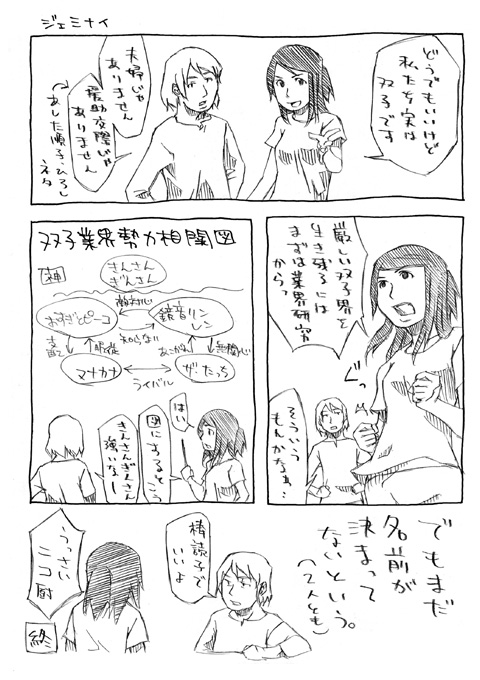 ジェミナイ
どうでもいいけど
私たち実は
双子です
夫婦じゃ
ありません
援助交際じゃ
ありません
あした順子・ひろし
ネタ
厳しい双子界を
生き残るには
まずは業界研究
からっ
ぐっ
そういう
もんかなぁ…
双子業界勢力相関図
神
きんさん
ぎんさん
おすぎとピーコ
敵対心
鏡音リン
レン
知らない
支配
服従
あこがれ
無関心
マナカナ
ライバル
ザ・たっち
はい
図にするとこう
きんさんぎんさん
強いなし
でもまだ
名前が
決まって
ないという。
(2人とも)
棒読子で
いいよ
うっさい
ニコ厨
終